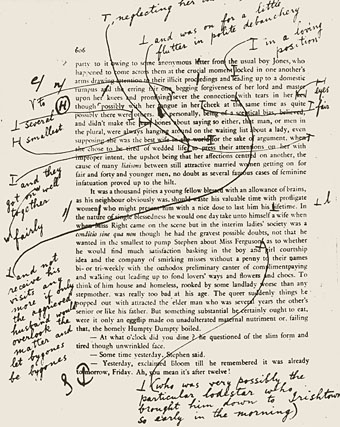 T, neglecting her
and was on for a little
flutter in polite debauchery
T in a loving
position
606
party to it owing to some anonymous letter from the usual boy Jones, who
happened to come across them at the crucial moment locked in one another's
arms drawing attention to their illicit proceedings and leading up to a domestic
rumpus and the erring fair one begging forgiveness of her lord and master
upon her knees and promising never the connection with tears in her
though possibly with her tongue in her cheek at the same time as quite
possibly there were others. Personally, being of a sceptical bias, believed,
and didn't make the bones about saying so either, that man, or men in
the plural, were always hanging around on the waiting list about a lady, even
supposing she was the best wife in the world for the sake of argument, when
she chose to be tired of wedded life to press their attentions on her with
improper intent, the upshot being that her affections centred on another, the
cause of many liaisons between still attractive married women getting on for
fair and forty and younger men, no doubt as several famous cases of feminine
infatuation proved up to the hilt.
It was a thousand pities a young fellow blessed with an allowance of brains,
as his neighbour obviously was, should waste his valuable time with profligate
women who might present him with a nice dose to last him his lifetime. In
the nature of single blessedness he would one day take unto himself a wife when
when Miss Right came on the scene but in the interim ladies' society was a
conditio sine qua non though he had the gravest possible doubts, not that he
wanted in the smallest to pump Stephen about Miss Ferguson as to whether
he would find much satisfaction basking in the boy and girl courtship
idea and the company of smirking misses without a penny to their names
bi- or tri-weekly with the orthodox preliminary canter of complimentpaying
and walking out leading up to fond lovers' ways and flowers and chocs. To
think of him house and homeless, rooked by some landlady worse than any
stepmother, was really too bad at his age. The queer suddenly things he
popped out with attracted the elder man who was several years the other's
senior or like his father. But something substantial he certainly ought to eat,
were it only an eggflip made on unadulterated maternal nutriment or, failing
that, the homely Humpty Dumpty boiled.
— At what o'clock did you dine? he questioned of the slim form and
tired though unwrinkled face.
— Some time yesterday, Stephen said.
— Yesterday, exclaimed Bloom till he remembered it was already
tomorrow, Friday. Ah, you mean it's after twelve!
H
several
smallest
eyes
fair
and they
got on well
together
fairly
and not
receive his
visits any
more if only
the aggrieved
husband would
overlook the
matter and
let bygones
be bygones
(who was very possibly the
particular lodestar who
brought him down to Irishtown
so early in the morning)